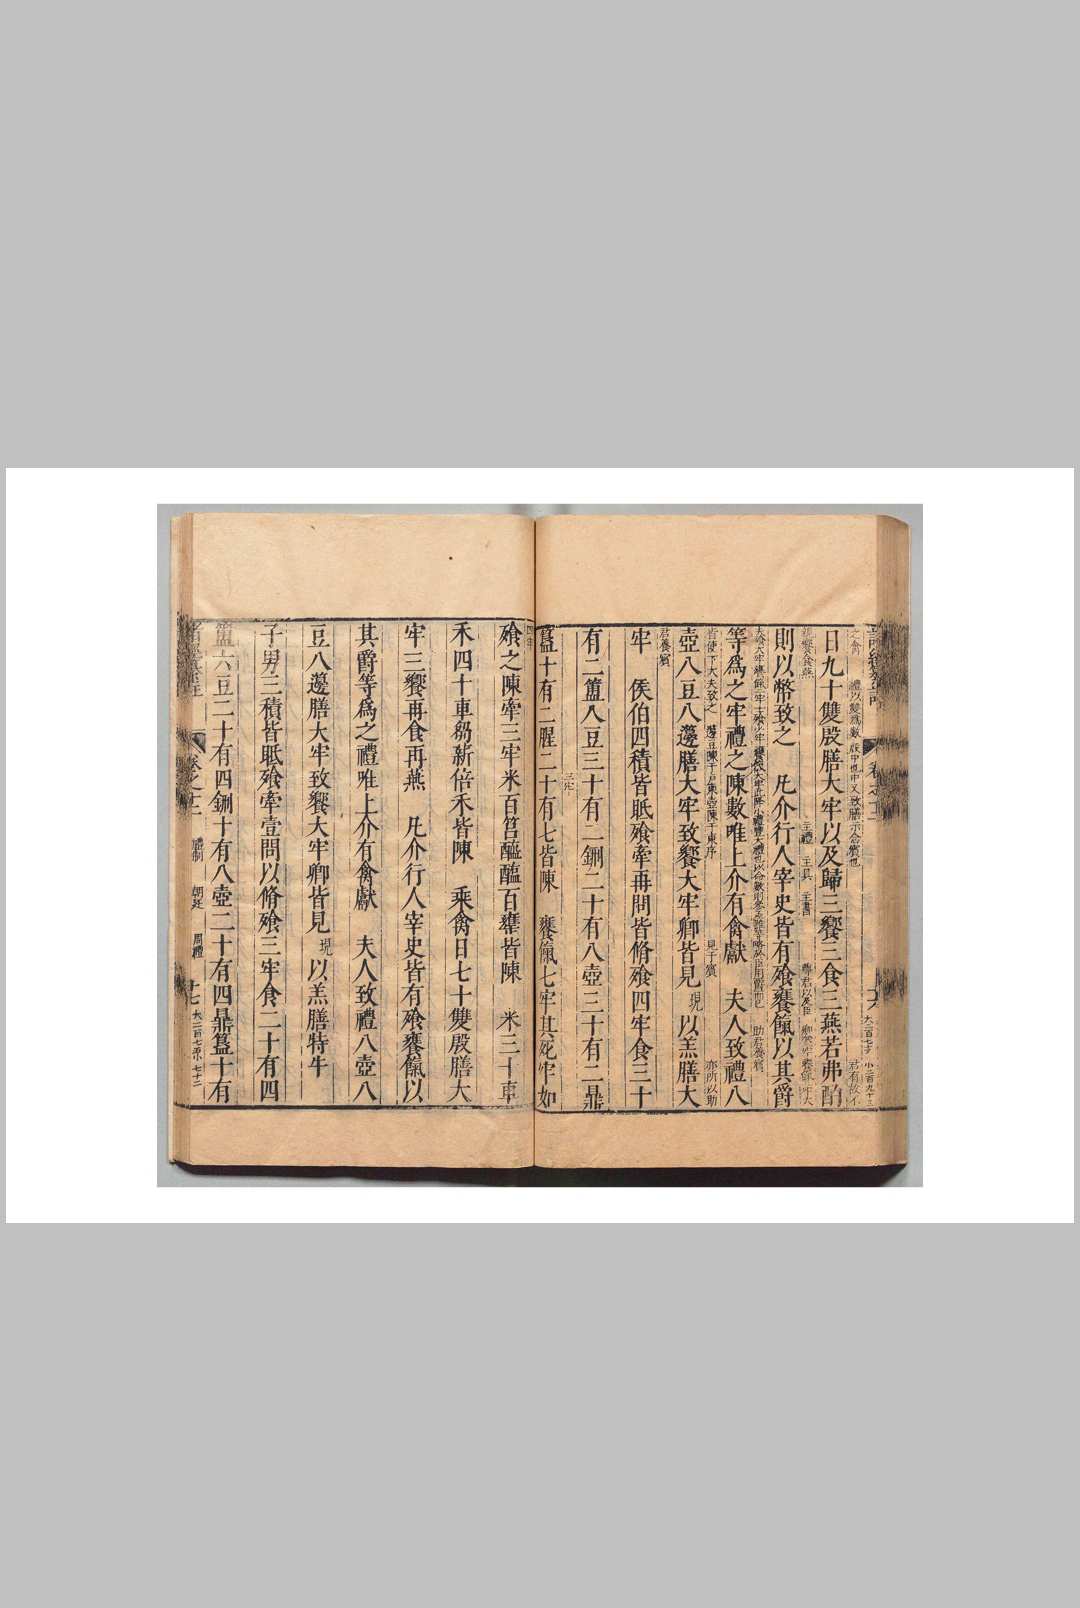 卷之十二
日九十雙殷膳大牢以及歸三饗三食三燕若弗酌
則以幣致之　凡介行人宰史皆有飧饔餼以其爵
等爲之牢禮之陳數唯上介有禽獻　夫人致禮八
皆使下大夫致之　籩豆陳于戶東壺陳于東序
壺八豆八籩膳大牢致饗大牢卿皆見現以羔膳大
見于賓
亦所以助
君養賓
牢　侯伯四積皆眡飧牽再問皆脩飧四牢食三十
有二簠八豆三十有二鉶二十有八壺三十有二鼎
簋十有二腥二十有七皆陳　饔餼七牢其死牢如
飧之陳牽三牢米百筥醯醢百罋皆陳　米三十車
禾四十車芻薪倍禾皆陳　乘禽日七十雙殷膳大
牢三饗再食再燕　凡介行人宰史皆有飧饔餼以
其爵等爲之禮唯上介有禽獻　夫人致禮八壺八
豆八籩膳大牢致饗大牢卿皆見現以羔膳特牛
子男三積皆眡飧牽壹問以脩飧三牢食二十有四
簠六豆二十有四鉶十有八壺二十有四鼎簋十有
卷之十二　禮制　朝廷　周禮　十七